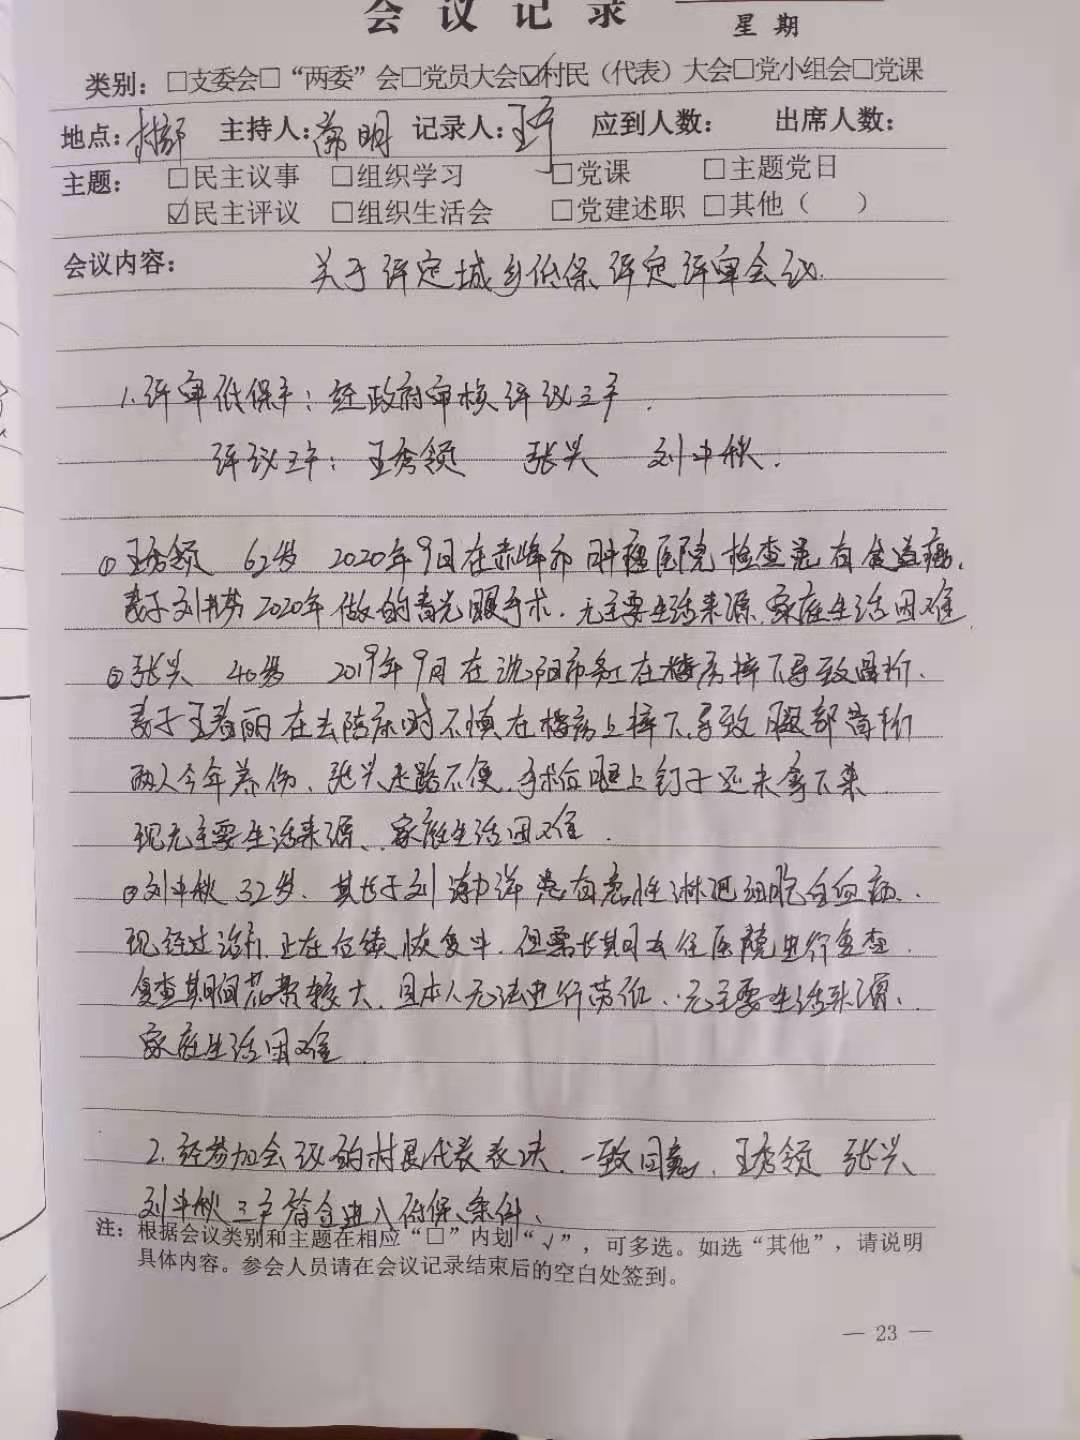 会议记录
星期
类别：□支委会□“两委”会□党员大会☑村民（代表）大会□党小组会□党课
地点：村部 主持人： 明 记录人：王 应到人数： 出席人数：
主题： □民主议事 □组织学习 □党课 □主题党日
☑民主评议 □组织生活会 □党建述职 □其他（ ）
会议内容： 关于评定城乡低保评定评审会议.
1.评审低保户：经政府审核评议三户.
评议三户：王秀领 张兴 刘中秋.
①王秀领 62岁 2020年9月在赤峰市肿瘤医院检查患有食道癌.
妻子刘 2020年做的青光眼手术.无主要生活来源.家庭生活困难
②张兴 40岁 2019年9月在沈阳市务工在楼房摔下导致 .
妻子王春丽在去陪床时不慎在楼房上摔下.导致腿部骨折
两人今年养伤.张兴走路不便.手术位腿上钉子还未拿下来
现无主要生活来源、家庭生活困难.
③刘中秋32岁.其长子刘 洋患有急性淋巴细胞白血病.
现经过治疗正在位续恢复中.但需长期去住医院进行复查.
复查期间花费较大.且本人无法进行劳作.无主要生活来源.
家庭生活困难.
2.经参加会议的村民代表表决.一致同意.王秀领 张兴
刘中秋三户符合进入低保条件.
注：根据会议类别和主题在相应“□”内划“√”，可多选。如选“其他”，请说明
具体内容。参会人员请在会议记录结束后的空白处签到。
— 23 —